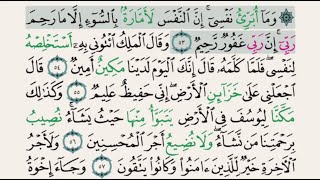 ۞ وَمَا أُبَرِّئُ نَفْسِي ۚ إِنَّ النَّفْسَ لَأَمَّارَةٌ بِالسُّوءِ إِلَّا مَا رَحِمَ
رَبِّي ۚ إِنَّ رَبِّي غَفُورٌ رَّحِيمٌ ٥٣ وَقَالَ الْمَلِكُ ائْتُونِي بِهِ أَسْتَخْلِصْهُ
لِنَفْسِي ۖ فَلَمَّا كَلَّمَهُ قَالَ إِنَّكَ الْيَوْمَ لَدَيْنَا مَكِينٌ أَمِينٌ ٥٤ قَالَ
اجْعَلْنِي عَلَىٰ خَزَائِنِ الْأَرْضِ ۖ إِنِّي حَفِيظٌ عَلِيمٌ ٥٥ وَكَذَٰلِكَ
مَكَّنَّا لِيُوسُفَ فِي الْأَرْضِ يَتَبَوَّأُ مِنْهَا حَيْثُ يَشَاءُ ۚ نُصِيبُ
بِرَحْمَتِنَا مَن نَّشَاءُ ۖ وَلَا نُضِيعُ أَجْرَ الْمُحْسِنِينَ ٥٦ وَلَأَجْرُ
الْآخِرَةِ خَيْرٌ لِّلَّذِينَ آمَنُوا وَكَانُوا يَتَّقُونَ ٥٧ وَجَاءَ إِخْوَةُ